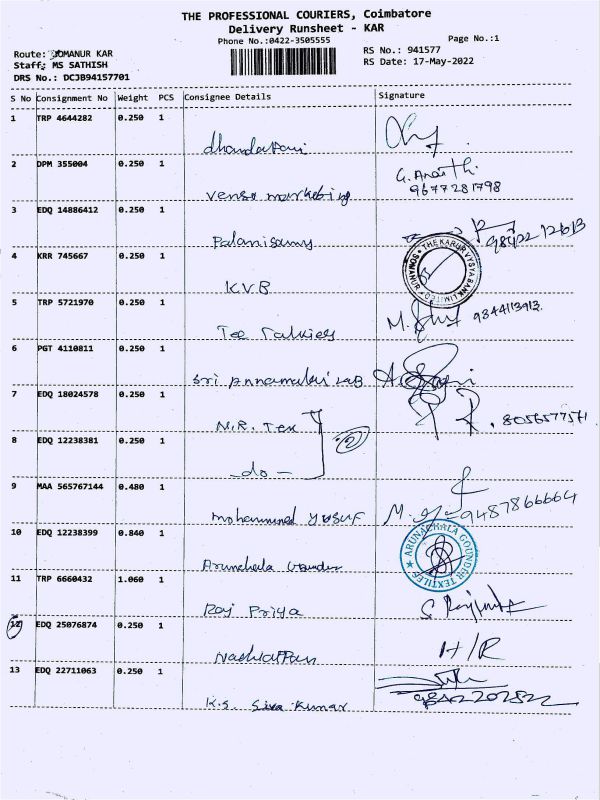 THE PROFESSIONAL COURIERS, Coimbatore
Delivery Runsheet - KAR
Phone No.:0422-3505555
Page No.:1
Route: SOMANUR KAR
RS No.: 941577
Staff: MS SATHISH
RS Date: 17-May-2022
DRS No.: DCJB94157701
S No Consignment No Weight PCS Consignee Details Signature
1 TRP 4644282 0.250 1
2 DPM 355004 0.250 1 G. Ananth.
9677281798
3 EDQ 14886412 0.250 1 Palanisamy
4 KRR 745667 0.250 1 K.V.B
THE KARUR VYSYA BANK LIMITED SOMANUR
5 TRP 5721970 0.250 1 M. 9344113913.
6 PGT 4110811 0.250 1 Sri Annamalai Lab
7 EDQ 18024578 0.250 1 N.R. Tex
8 EDQ 12238381 0.250 1 -do- 2
9 MAA 565767144 0.480 1 Mohammed Yusuf M. 9487866664
10 EDQ 12238399 0.840 1 Arunachala Gounder
ARUNACHALA GOUNDER TEXTILE
11 TRP 6660432 1.060 1 Raj Priya
12 EDQ 25076874 0.250 1 H/R
13 EDQ 22711063 0.250 1 K.S. Siva Kumar 9842202822